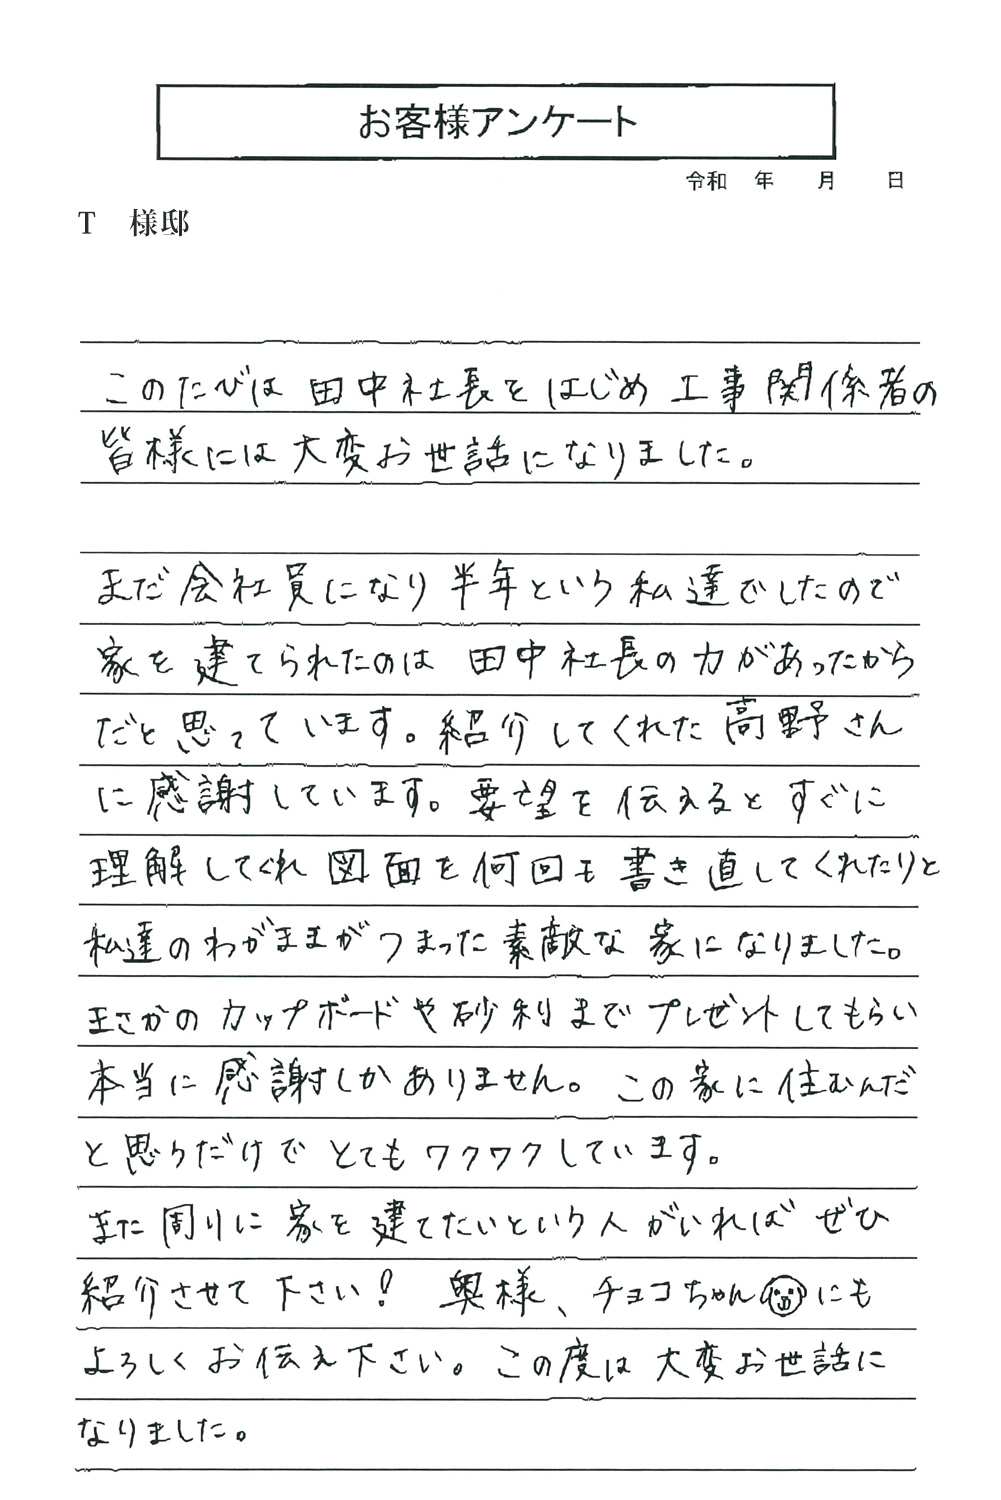 お客様アンケート
令和 年 月 日
T 様邸
このたびは 田中社長をはじめ 工事関係者の
皆様には大変お世話になりました。
まだ会社員になり半年という私達でしたので
家を建てられたのは 田中社長の力があったから
だと思っています。紹介してくれた高野さん
に感謝しています。要望を伝えるとすぐに
理解してくれ図面を何回も書き直してくれたりと
私達のわがままがつまった素敵な家になりました。
まさかのカップボードや砂利までプレゼントしてもらい
本当に感謝しかありません。この家に住むんだ
と思うだけでとてもワクワクしています。
また周りに家を建てたいという人がいればぜひ
紹介させて下さい! 奥様、チョコちゃんにも
よろしくお伝え下さい。この度は大変お世話に
なりました。